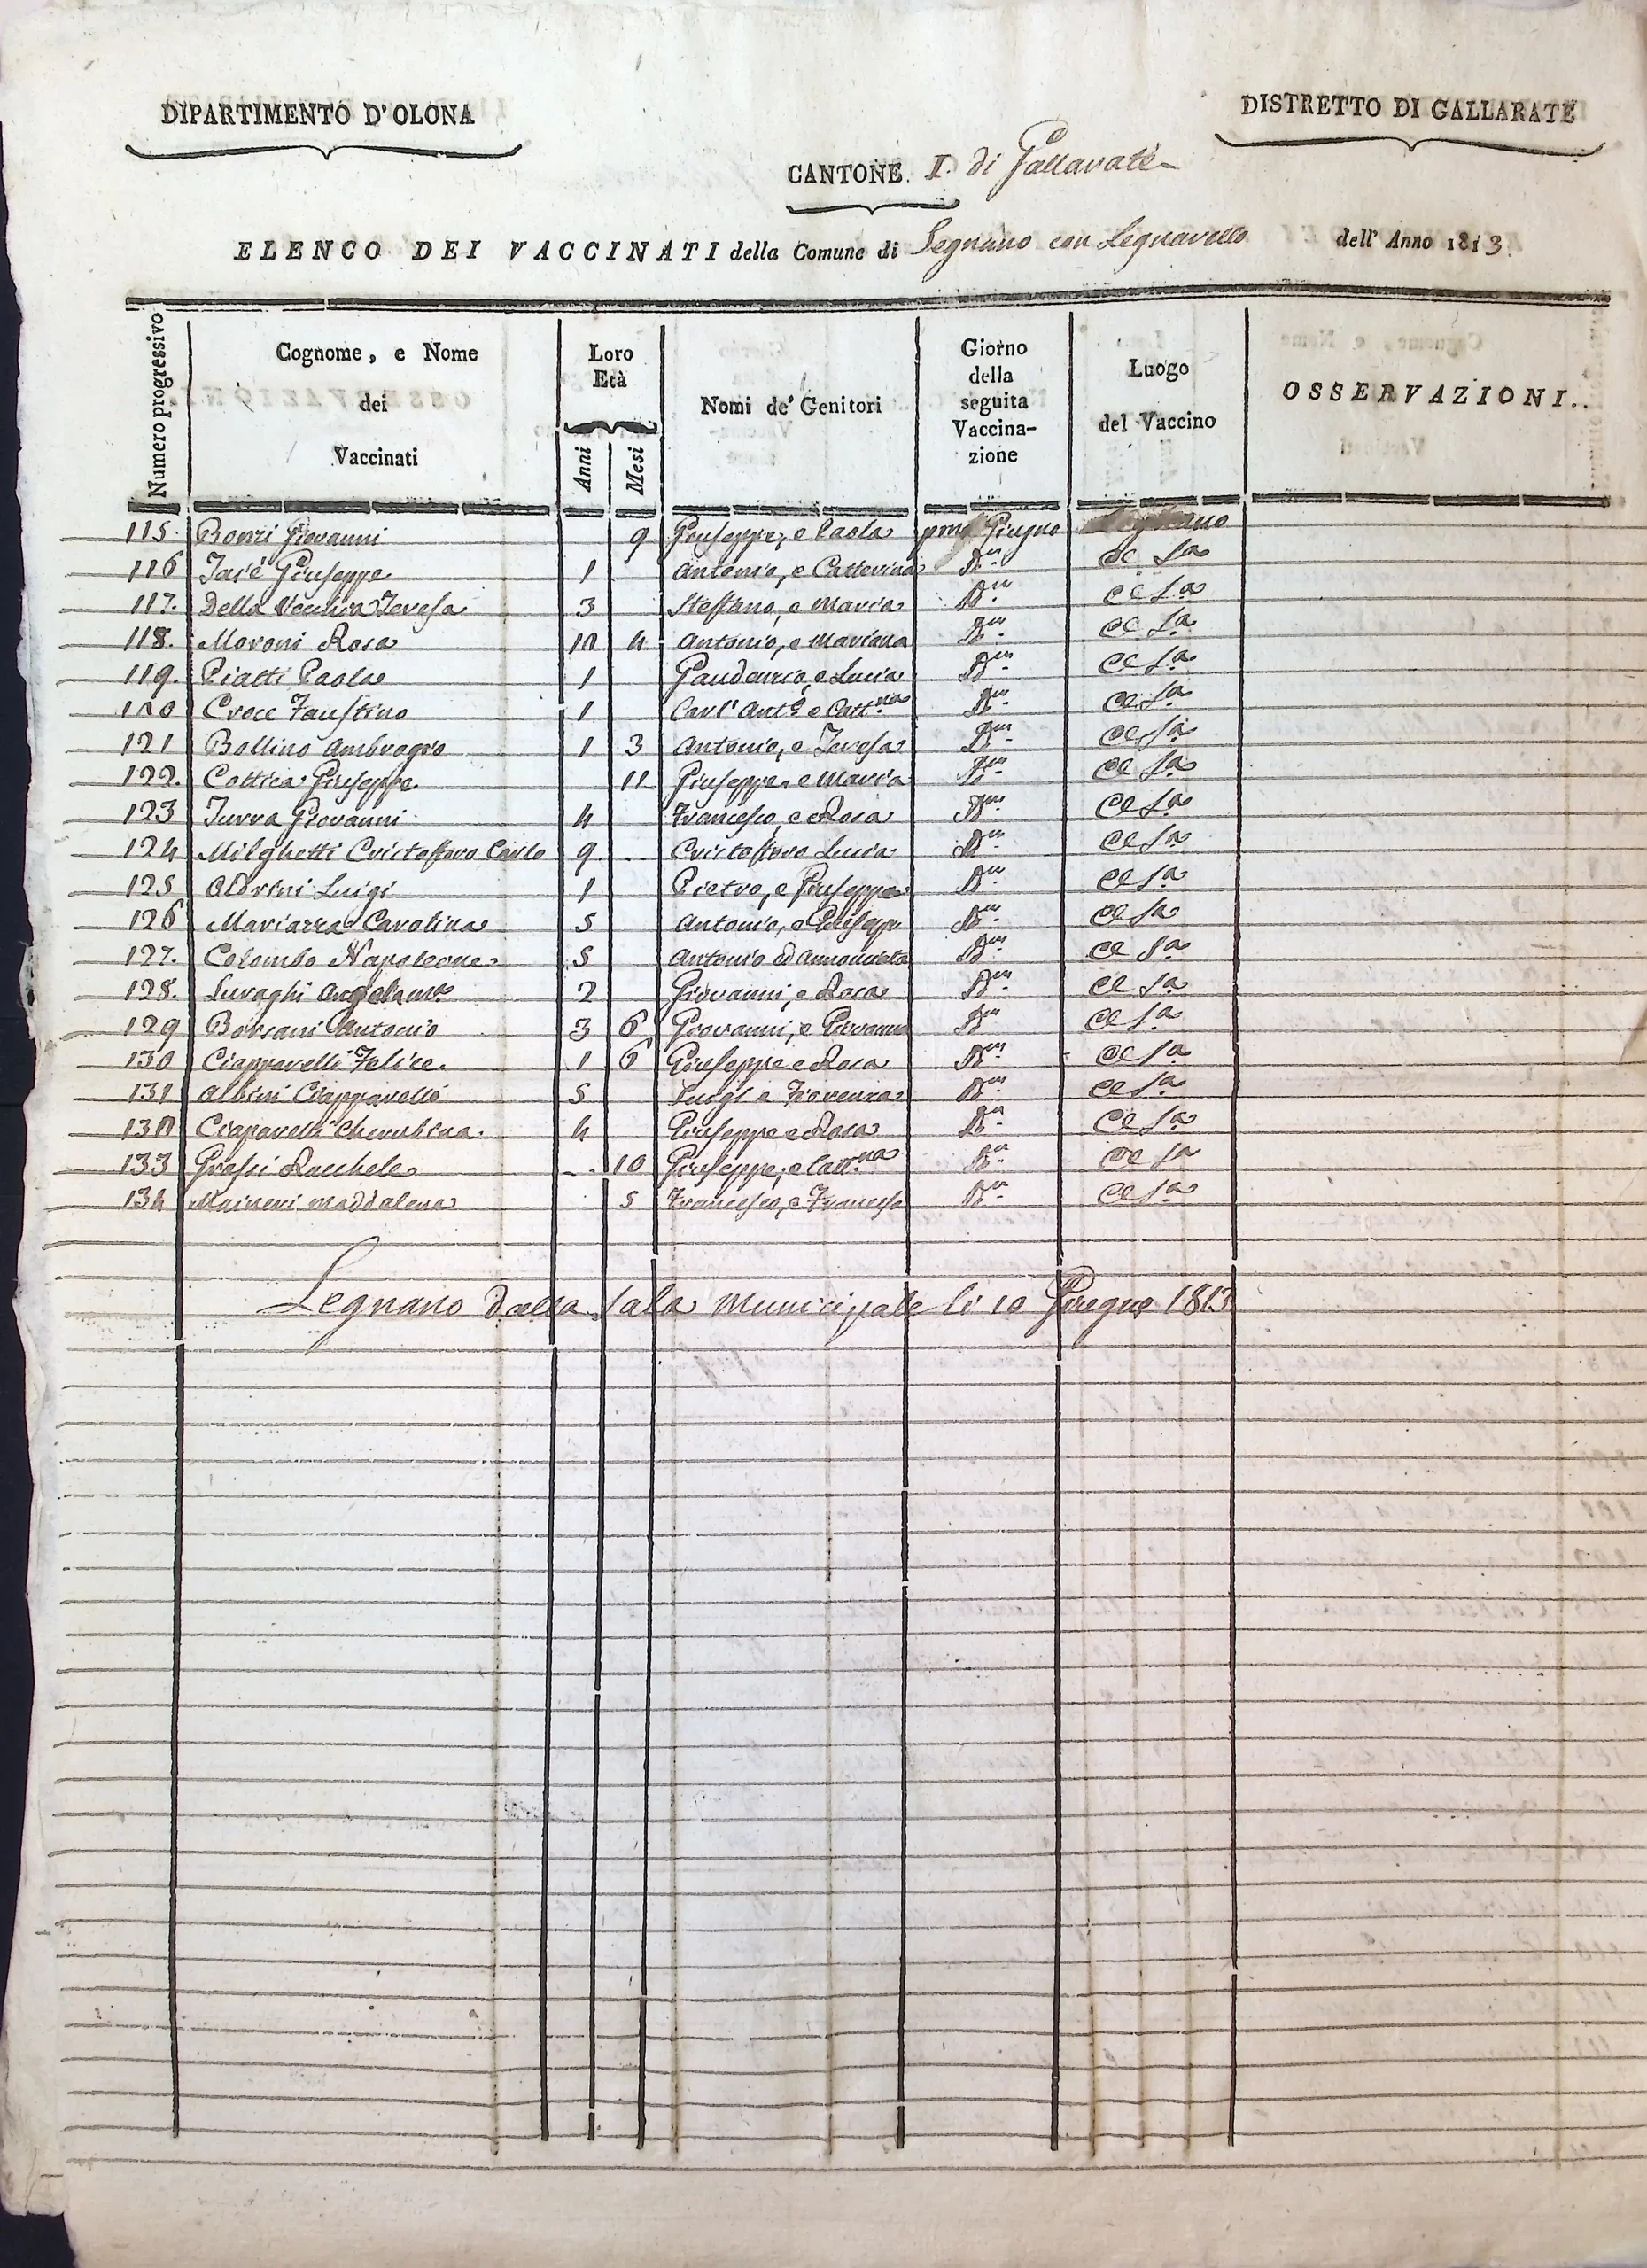 DIPARTIMENTO D' OLONA
DISTRETTO DI GALLARATE
CANTONE I. di Gallarate
ELENCO DEI VACCINATI della Comune di Legnano con Legnarello dell' Anno 1813
Numero progressivo Cognome, e Nome dei Vaccinati Loro Età Anni Mesi Nomi de' Genitori Giorno della seguita Vaccinazione Luogo del Vaccino OSSERVAZIONI.
115. Bonzi Giovanni 9 Giuseppe, e Paola pmo Giugno Legnano
116 Giuseppe 1 Antonio, e Catterina
117. Della Vecchia Teresa 3 Steffano, e Maria
118. Moroni Rosa 12 4 Antonio, e Mariana
119. Piatti Paola 1 Gaudenzio, e Lucia
120 Croce Faustino 1 Carl' Ant.o e Catt.na
121 Bollino Ambrogio 1 3 Antonio, e Teresa
122. Cottica Giuseppe 11 Giuseppe, e Maria
123 Turra Giovanni 4 Francesco, e Rosa
124 Milghetti Cristofforo Carlo 9 Cristofforo Lucia
125 Luigi 1 Pietro, e Giuseppa
126 Mariazza Carolina 5 Antonio, e Giusepp
127. Colombo Napoleone 5 Antonio ed Annonciata
128. Luraghi 2 Giovanni, e Rosa
129 Borsani Antonio 3 6 Giovanni, e Giovanna
130 Ciapparelli Felice 1 6 Giuseppe e Rosa
131 Albini Ciapparelli 5 Luigi e Fiorenza
132 Ciaparelli Cherubina 4 Giuseppe e Rosa
133 Grassi Racchele 10 Giuseppe, e Catt.na
134 Maineri Maddalena 5 Francesco, e Francesca
Legnano dalla Sala Municipale li 10 Giugno 1813